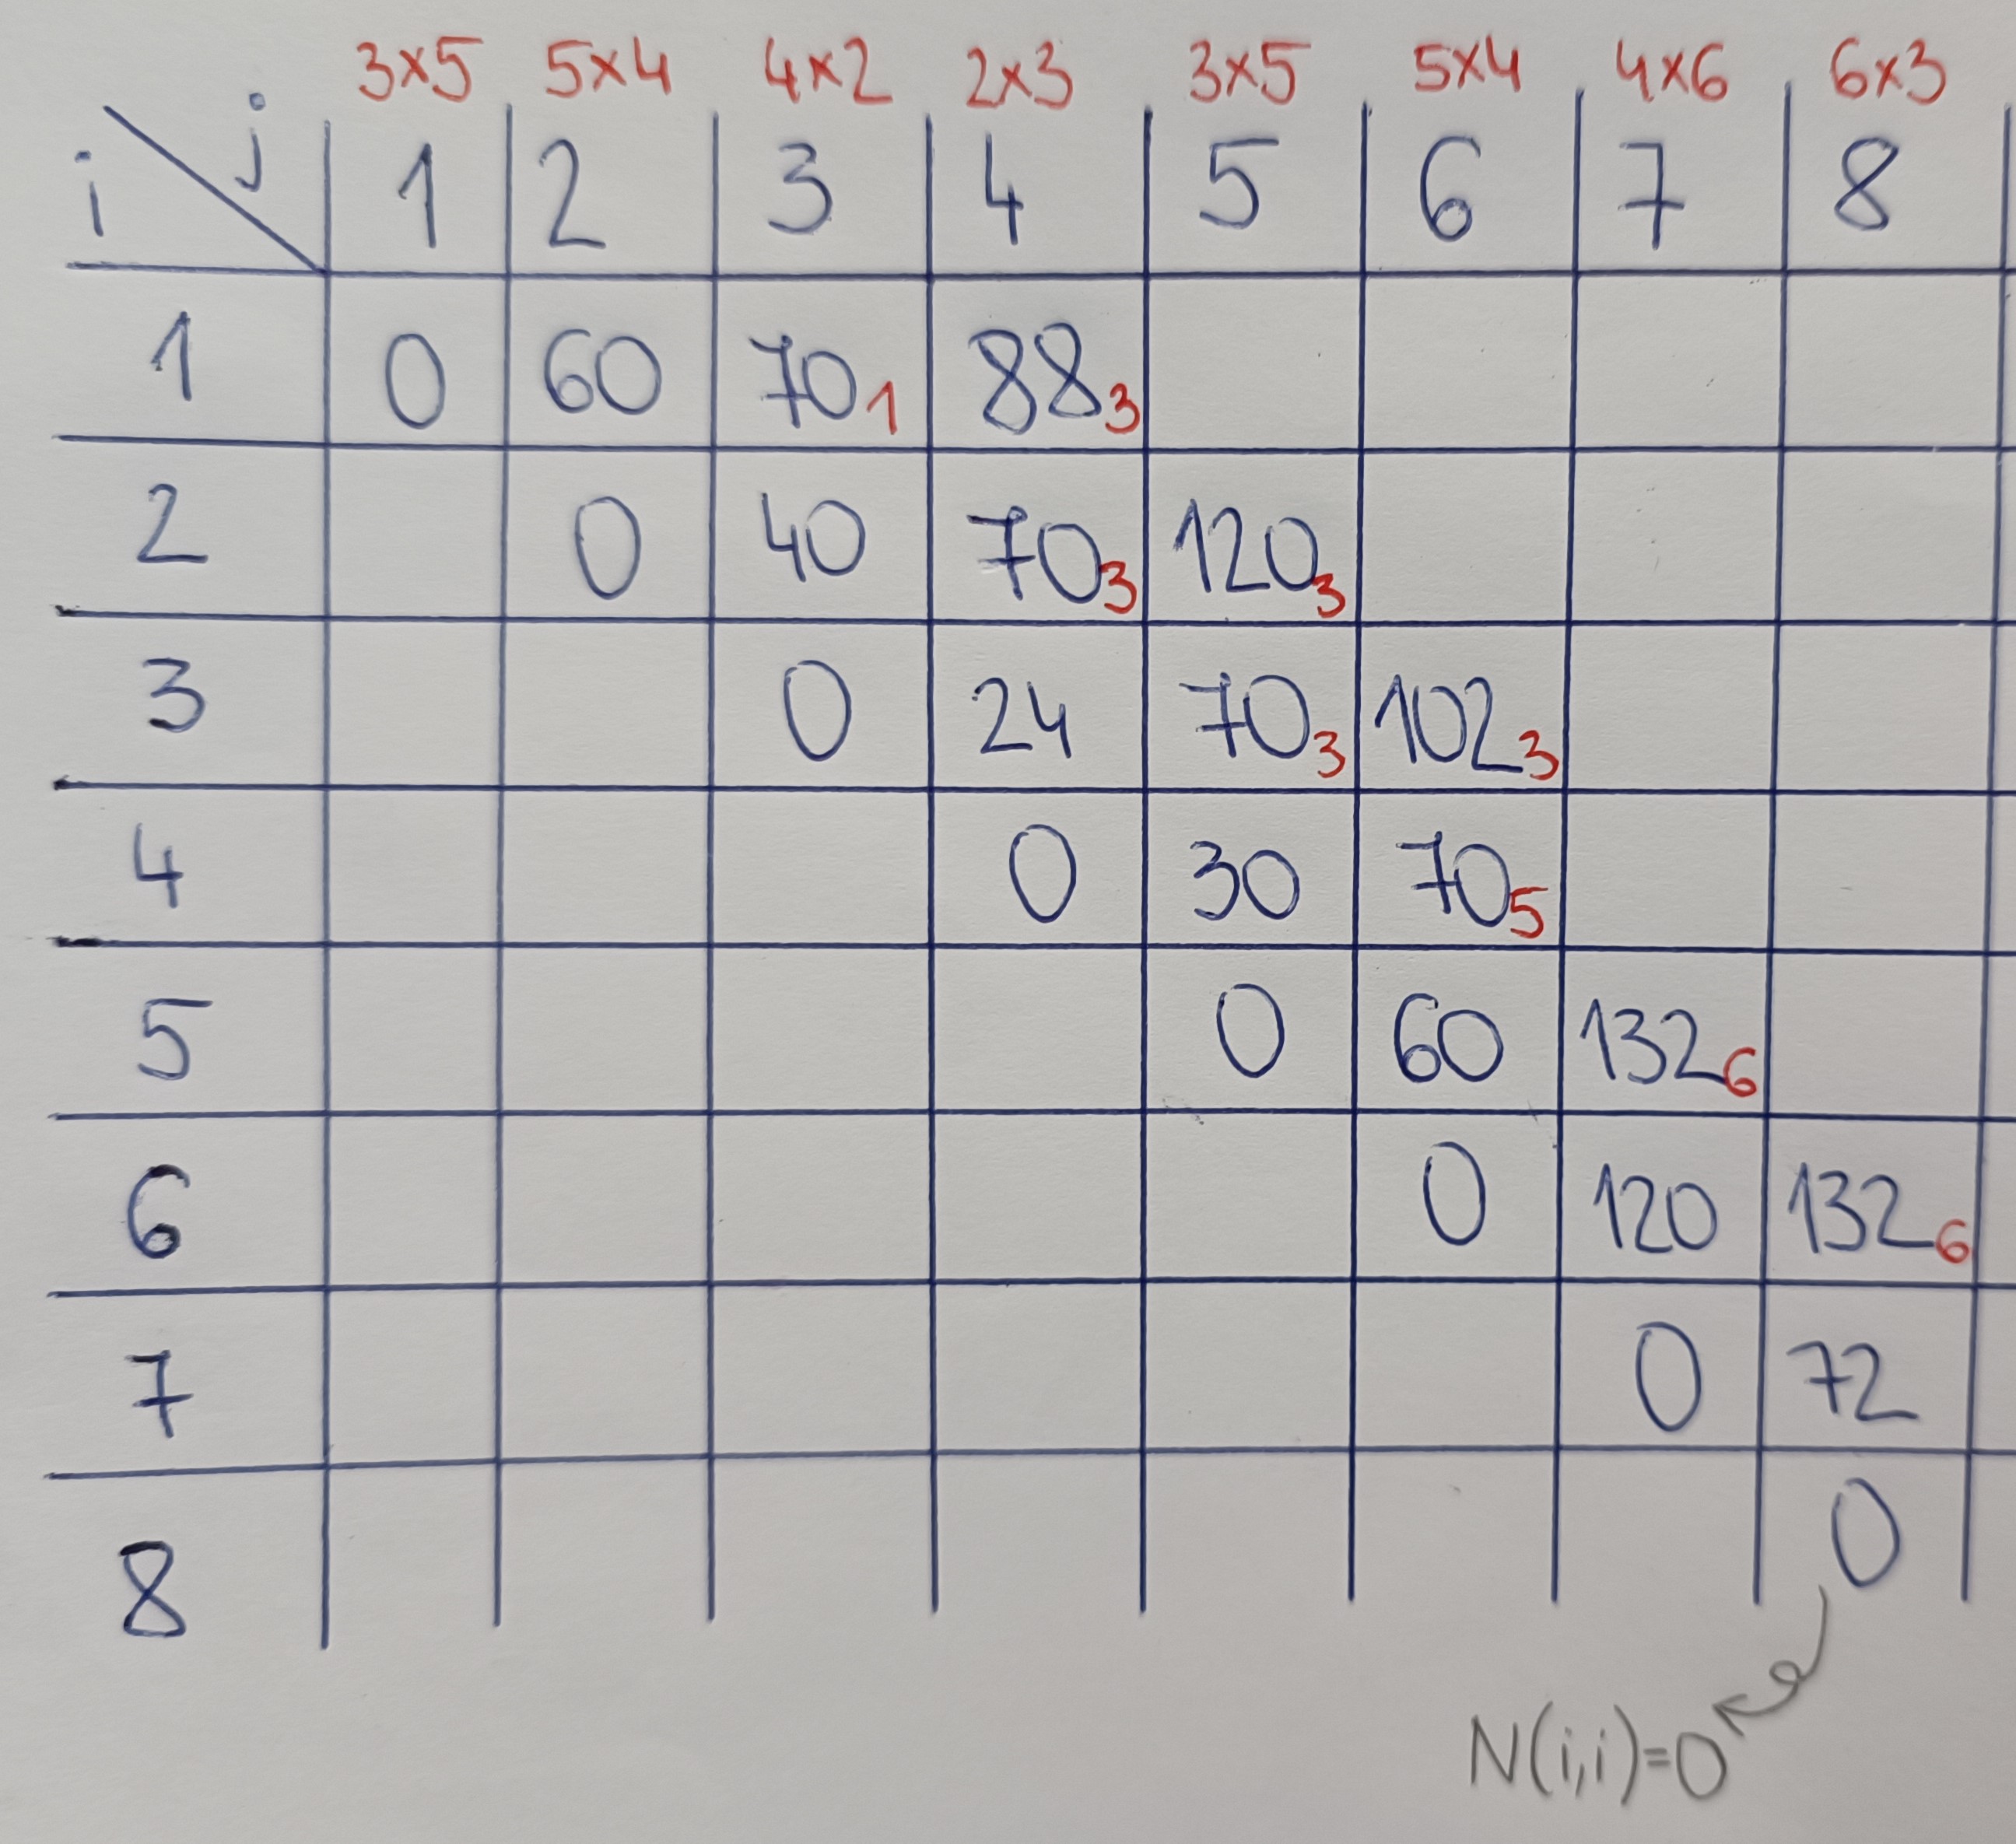 3x5 5x4 4x2 2x3 3x5 5x4 4x6 6x3
i j 1 2 3 4 5 6 7 8
1 0 60 70 1 88 3
2 0 40 70 3 120 3
3 0 24 70 3 102 3
4 0 30 70 5
5 0 60 132 6
6 0 120 132 6
7 0 72
8 0
N(i,i)=0